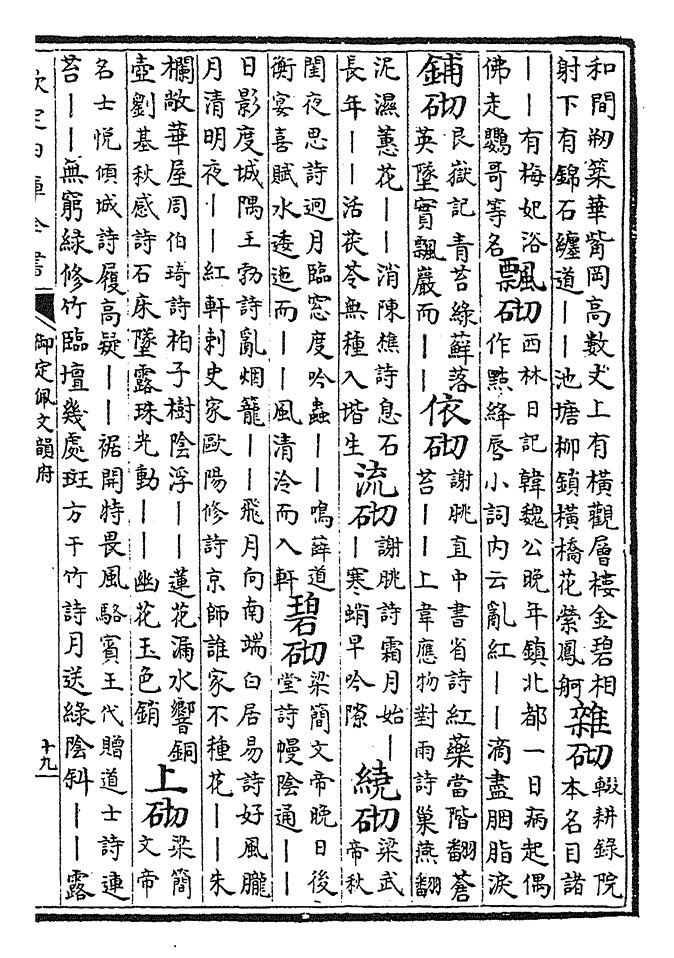 和間剏築華觜岡高數丈上有橫觀層樓金碧相
射下有錦石纏道——池塘柳鎖橫橋花縈鳳舸
雜砌
輟耕錄院
本名目諸
——有梅妃浴
佛走鸚哥等名
飄砌
西林日記韓魏公晚年鎮北都一日病起偶
作點絳唇小詞內云亂紅——滴盡胭脂淚
鋪砌
艮嶽記青苔綠蘚落
英墜實飄巖而——
依砌
謝朓直中書省詩紅藥當階翻蒼
苔——上韋應物對雨詩巢燕翻
泥濕蕙花——消陳樵詩息石
長年——活茯苓無種入堦生
流砌
謝朓詩霜月始—
—寒蛸早吟隙
繞砌
梁武
帝秋
閨夜思詩迥月臨窓度吟蟲——鳴薛道
衡宴喜賦水逶迤而——風清泠而入軒
碧砌
梁簡文帝晚日後
堂詩幔陰通——
日影度城隅王勃詩亂烟籠——飛月向南端白居易詩好風朧
月清明夜——紅軒刺史家歐陽修詩京師誰家不種花——朱
欄敞華屋周伯琦詩柏子樹陰浮——蓮花漏水響銅
壺劉基秋感詩石床墜露珠光動——幽花玉色銷
上砌
梁簡
文帝
名士悅傾城詩履高疑——裾開特畏風駱賓王代贈道士詩連
苔——無窮綠修竹臨壇幾處斑方干竹詩月送綠陰斜——露
欽定四庫全書
御定佩文韻府
十九